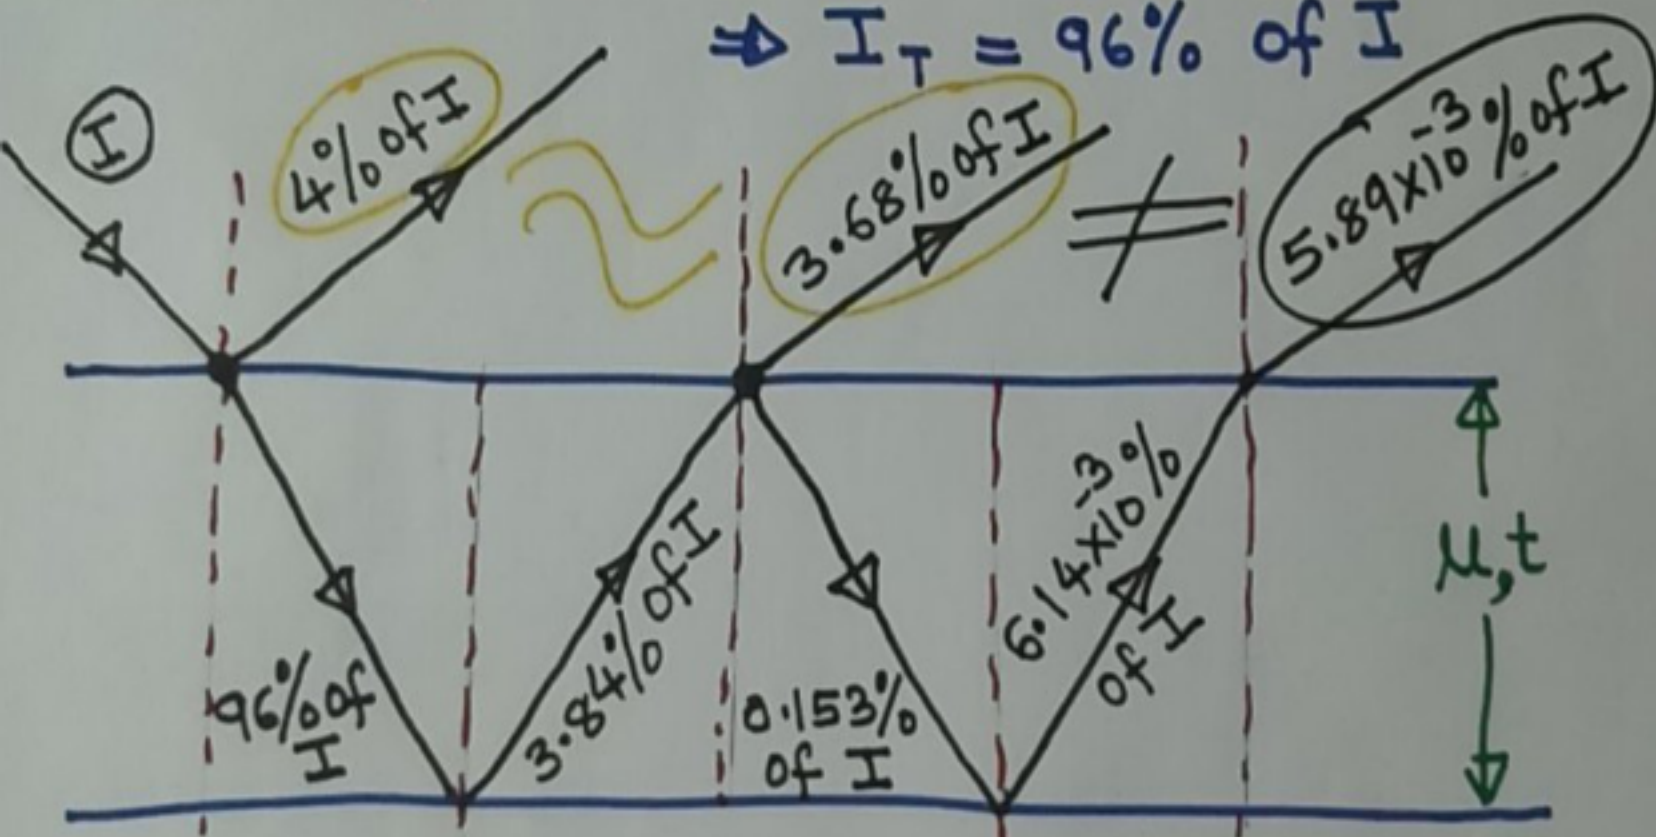 ⇒ I_T = 96% of I
I
4% of I
3.68% of I
5.89×10^-3 % of I
96% of
I
3.84% of I
0.153%
of I
6.14×10^-3 %
of I
μ,t